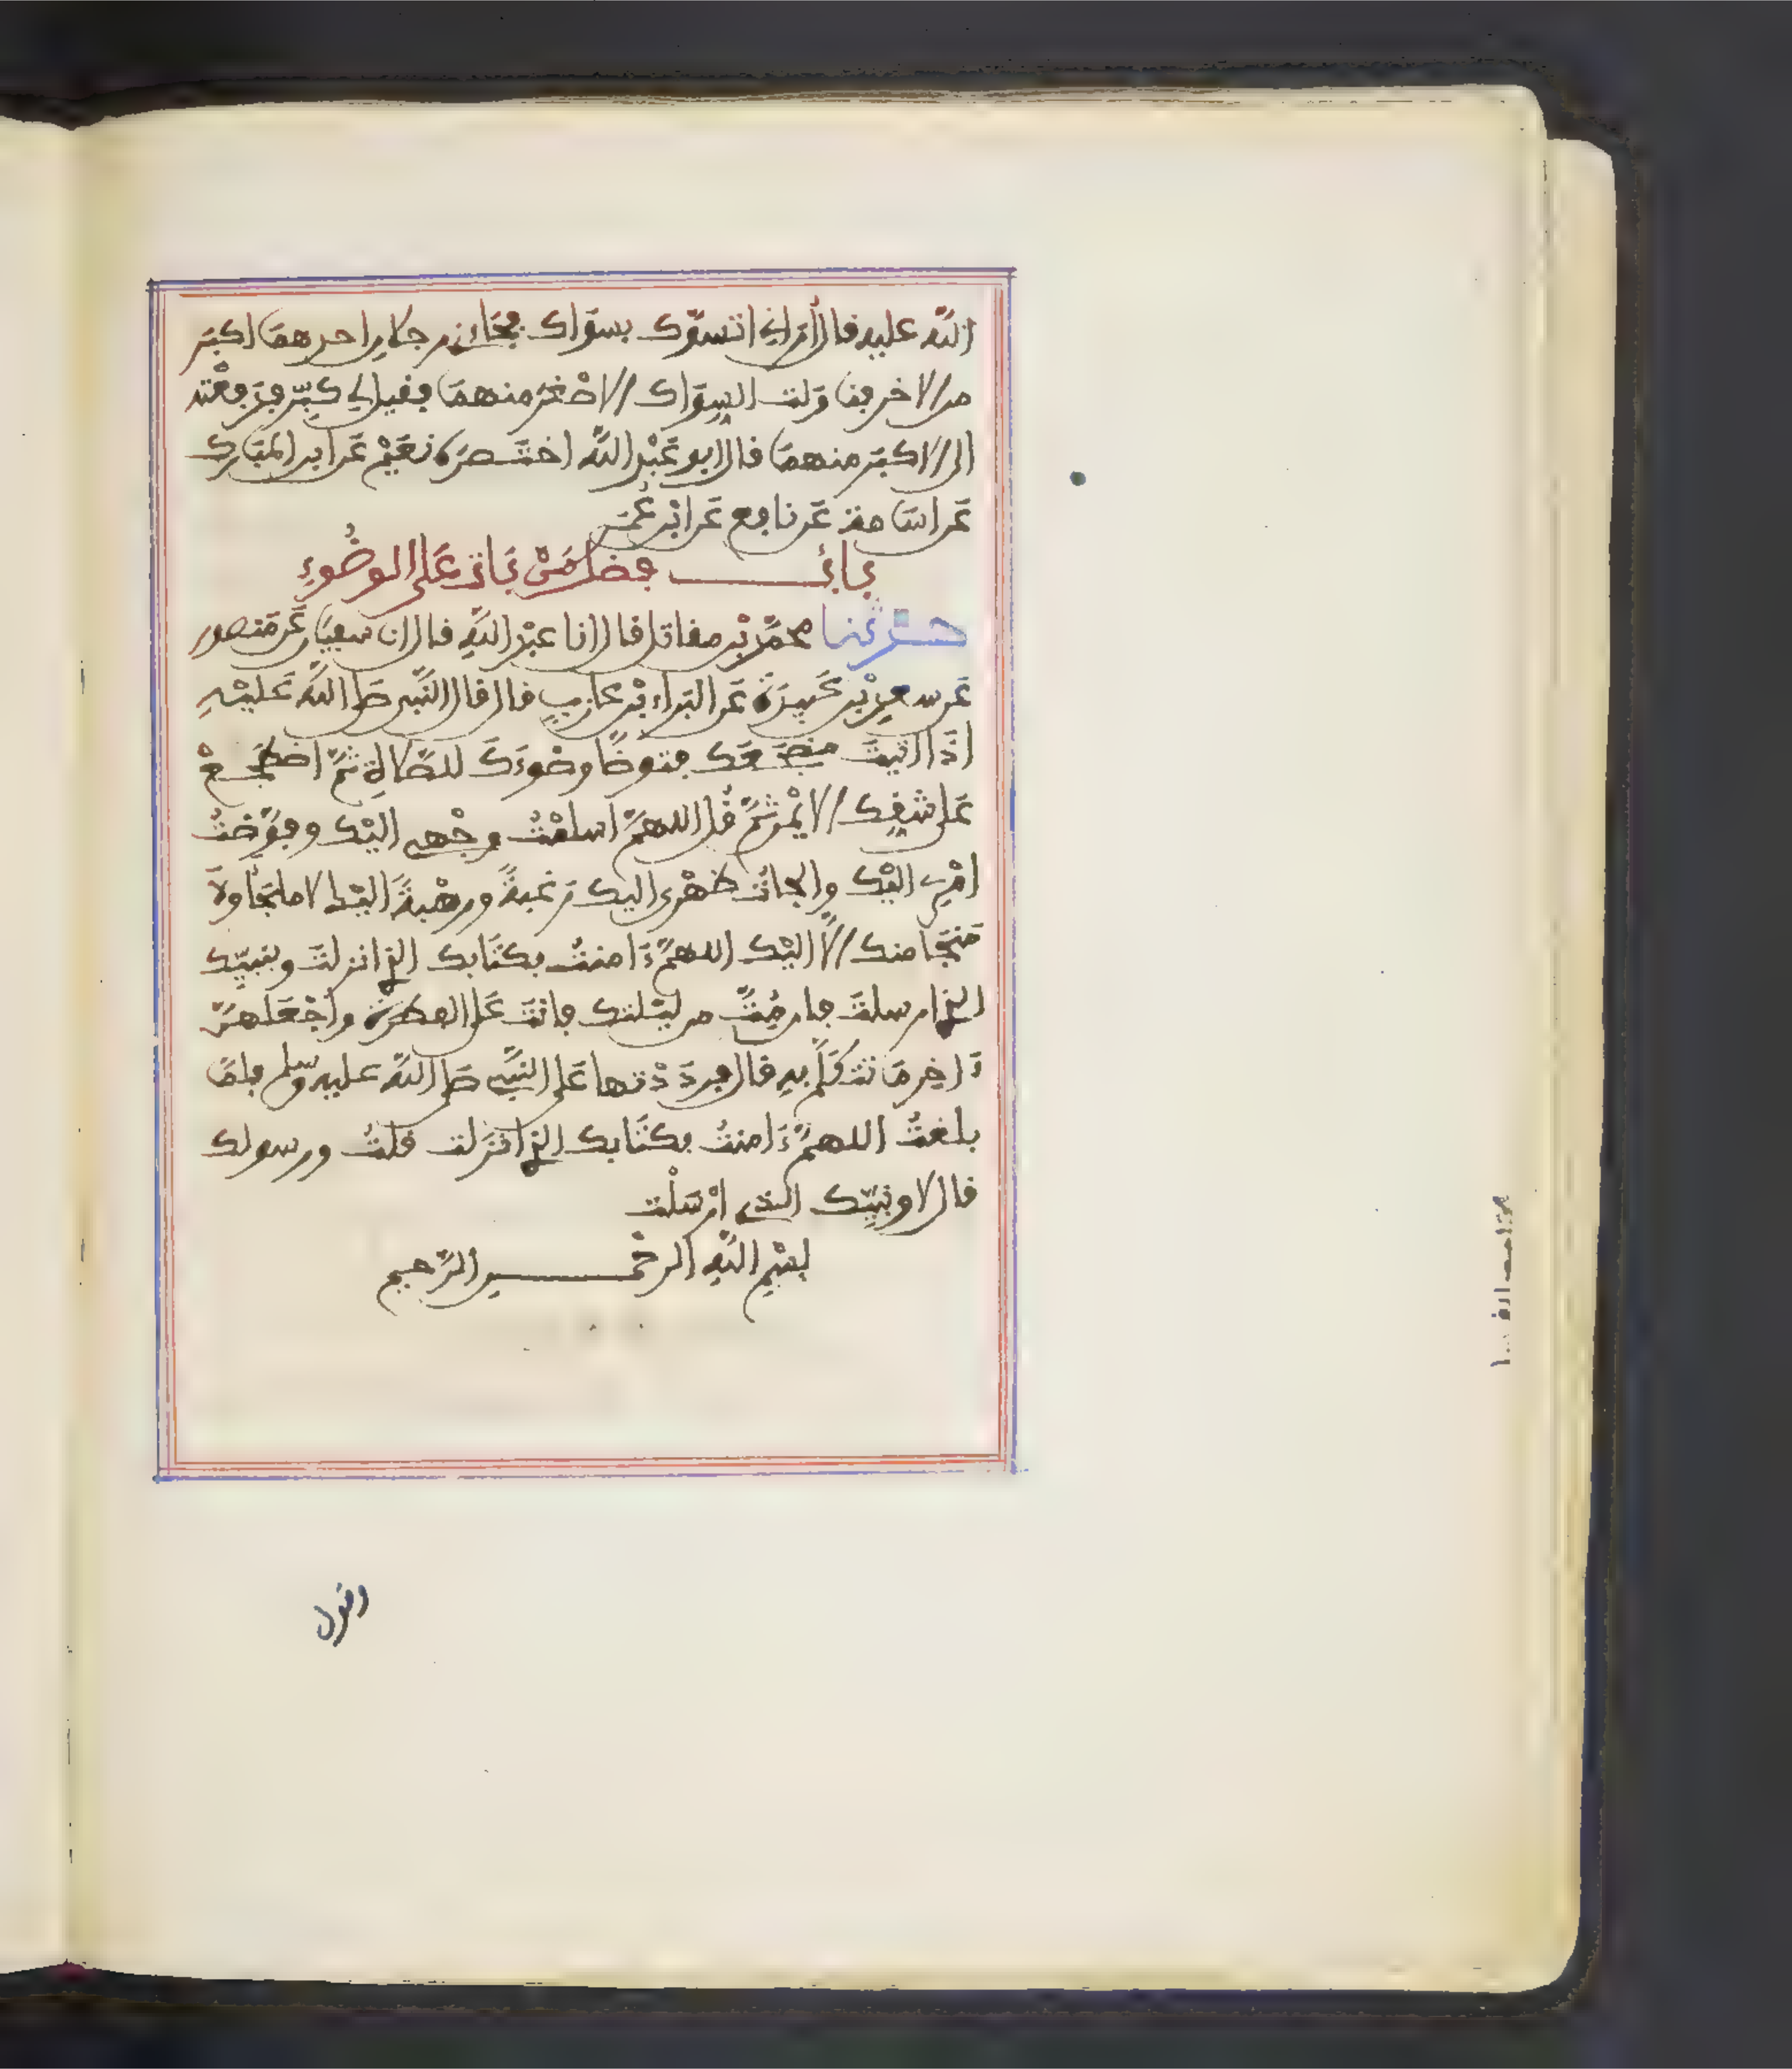 الله عليه قال أراني اتسوّك بسواك فجاءني رجلان احدهما اكبر
من الاخر فناولت السواك الاصغر منهما فقيل لي كبّر فدفعته
الى الاكبر منهما قال ابو عبد الله اختصره نعيم عن ابن المبارك
عن اسامة عن نافع عن ابن عمر
باب فضل من بات على الوضوء
حدثنا محمد بن مقاتل قال انا عبد الله قال انا سفيان عن منصور
عن سعد بن عبيدة عن البراء بن عازب قال قال النبي صلى الله عليه
اذا اتيت مضجعك فتوضأ وضوءك للصلاة ثم اضطجع
على شقك الايمن ثم قل اللهم اسلمت وجهي اليك وفوّضت
امري اليك والجأت ظهري اليك رغبة ورهبة اليك لا ملجأ ولا
منجا منك الا اليك اللهم ءامنت بكتابك الذي انزلت وبنبيّك
الذي ارسلت فإن متّ من ليلتك فانت على الفطرة واجعلهنّ
ءاخر ما تتكلم به قال فردّدتها على النبي صلى الله عليه وسلم فلما
بلغت اللهم ءامنت بكتابك الذي انزلت قلت ورسولك
قال لا ونبيّك الذي ارسلت
بسم الله الرحمن الرحيم
وقول